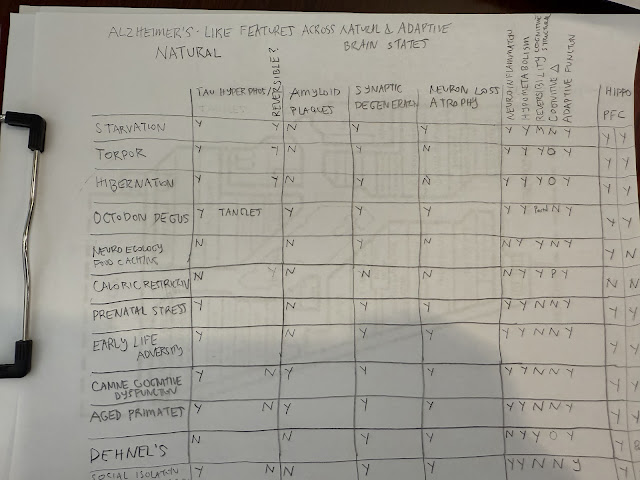 ALZHEIMER'S-LIKE FEATURES ACROSS NATURAL & ADAPTIVE
NATURAL BRAIN STATES
TAU HYPERPHOS/ REVERSIBLE? AMYLOID PLAQUES SYNAPTIC DEGENERATION NEURON LOSS ATROPHY NEUROINFLAMMATION HYPOMETABOLISM REVERSIBILITY COGNITIVE Δ ADAPTIVE FUNCTION HIPPO PFC
STARVATION Y Y N Y Y Y Y M N Y Y Y
TORPOR Y Y N Y N Y Y Y O Y Y Y
HIBERNATION Y Y N Y N Y Y Y O Y Y Y
OCTODON DEGUS Y TANGLET Y Y Y Y Y N Y Y Y
NEUROECOLOGY FOOD CACHING N N Y N N Y Y N Y Y N
CALORIC RESTRICTION N Y N N N N Y Y P Y N N
PRENATAL STRESS Y N Y Y Y Y N N Y Y Y
EARLY LIFE ADVERSITY Y N Y Y Y Y N N Y Y Y
CANINE COGNITIVE DYSFUNCTION Y N Y Y Y Y Y N N Y Y Y
AGED PRIMATET Y N Y Y Y Y Y N N Y Y Y
DEHNEL'S N N Y Y N Y Y O Y Y
SOCIAL ISOLATION Y N N Y Y Y Y N N Y Y